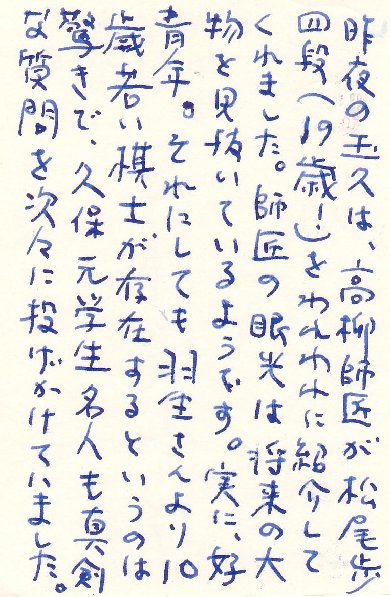 昨夜の玉久は、高柳師匠が松尾歩
四段(19歳!)をわれわれに紹介して
くれました。師匠の眼光は将来の大
物を見抜いているようです。実に、好
青年。それにしても羽生さんより10
歳若い棋士が存在するというのは
驚きで、久保元学生名人も真剣
な質問を次々に投げかけていました。